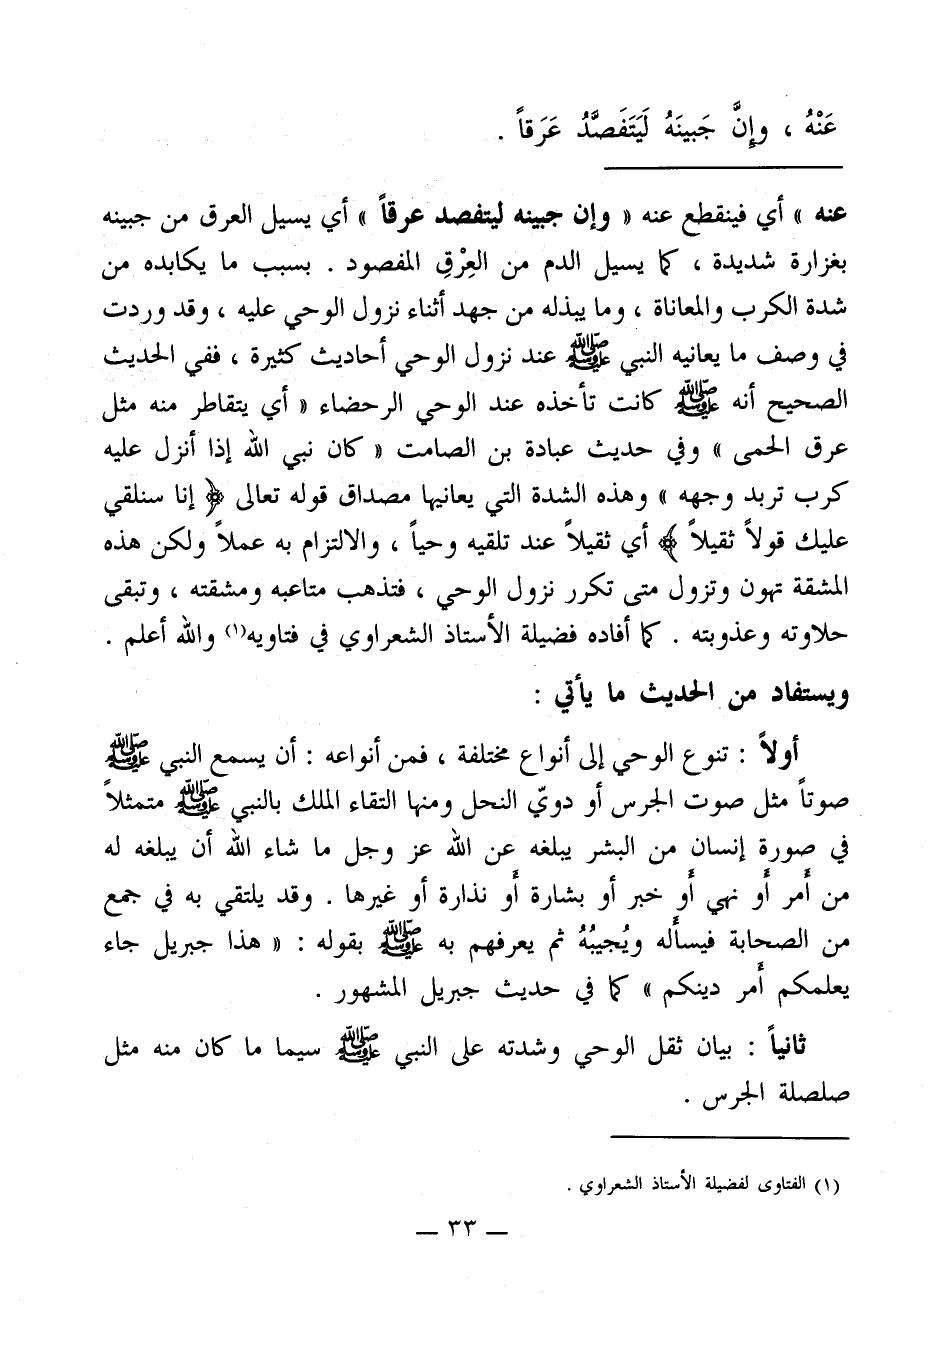 عَنْهُ ، وإِنَّ جَبينَهُ لَيَتَفَصَّدُ عَرَقاً .
عنه » أي فينقطع عنه « وإن جبينه ليتفصد عرقاً » أي يسيل العرق من جبينه
بغزارة شديدة ، كما يسيل الدم من العِرْقِ المفصود . بسبب ما يكابده من
شدة الكرب والمعاناة ، وما يبذله من جهد أثناء نزول الوحي عليه ، وقد وردت
في وصف ما يعانيه النبي ﷺ عند نزول الوحي أحاديث كثيرة ، ففي الحديث
الصحيح أنه ﷺ كانت تأخذه عند الوحي الرحضاء « أي يتقاطر منه مثل
عرق الحمى » وفي حديث عبادة بن الصامت « كان نبي الله إذا أنزل عليه
كرب تربد وجهه » وهذه الشدة التي يعانيها مصداق قوله تعالى ﴿ إنا سنلقي
عليك قولاً ثقيلاً ﴾ أي ثقيلاً عند تلقيه وحياً ، والالتزام به عملاً ولكن هذه
المشقة تهون وتزول متى تكرر نزول الوحي ، فتذهب متاعبه ومشقته ، وتبقى
حلاوته وعذوبته . كما أفاده فضيلة الأستاذ الشعراوي في فتاويه(١) والله أعلم .
ويستفاد من الحديث ما يأتي :
أولاً : تنوع الوحي إلى أنواع مختلفة ، فمن أنواعه : أن يسمع النبي ﷺ
صوتاً مثل صوت الجرس أو دويّ النحل ومنها التقاء الملك بالنبي ﷺ متمثلاً
في صورة إنسان من البشر يبلغه عن الله عز وجل ما شاء الله أن يبلغه له
من أمر أو نهي أو خبر أو بشارة أو نذارة أو غيرها . وقد يلتقي به في جمع
من الصحابة فيسأله ويُجيبُهُ ثم يعرفهم به ﷺ بقوله : « هذا جبريل جاء
يعلمكم أمر دينكم » كما في حديث جبريل المشهور .
ثانياً : بيان ثقل الوحي وشدته على النبي ﷺ سيما ما كان منه مثل
صلصلة الجرس .
(١) الفتاوى لفضيلة الأستاذ الشعراوي .
— ٣٣ —